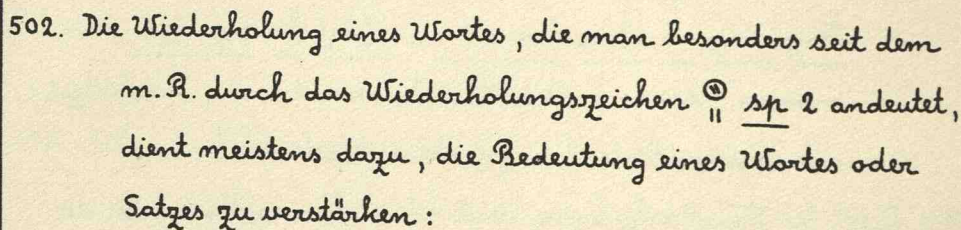 502. Die Wiederholung eines Wortes, die man besonders seit dem
m. R. durch das Wiederholungszeichen 𓊗𓏮 sp 2 andeutet,
dient meistens dazu, die Bedeutung eines Wortes oder
Satzes zu verstärken: